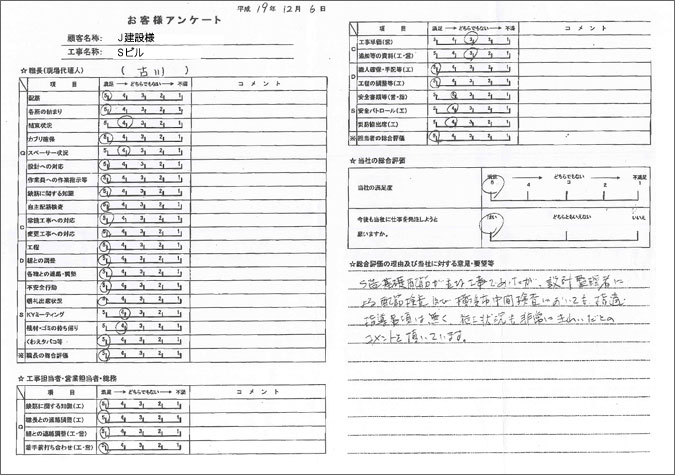 平成 19年 12月 6日
お客様アンケート
顧客名称: J建設様
工事名称: Sビル
☆職長(現場代理人) (古川)
項目 満足 → どちらでもない → 不満 コメント
配筋 5 4 3 2 1
各所の納まり 5 4 3 2 1
結束状況 5 4 3 2 1
カブリ確保 5 4 3 2 1
Q スペーサー状況 5 4 3 2 1
設計への対応 5 4 3 2 1
作業員への作業指示等 5 4 3 2 1
鉄筋に関する知識 5 4 3 2 1
自主配筋検査 5 4 3 2 1
C 常識工事への対応 5 4 3 2 1
変更工事への対応 5 4 3 2 1
工程 5 4 3 2 1
D 様との調整 5 4 3 2 1
各種との連絡・調整 5 4 3 2 1
不安全行動 5 4 3 2 1
朝礼出席状況 5 4 3 2 1
S KYミーティング 5 4 3 2 1
残材・ゴミの持ち帰り 5 4 3 2 1
くわえタバコ等 5 4 3 2 1
※ 職長の総合評価 5 4 3 2 1
☆工事担当者・営業担当者・総務
項目 満足 → どちらでもない → 不満 コメント
鉄筋に関する知識(工) 5 4 3 2 1
Q 職長との連絡調整(工) 5 4 3 2 1
様との連絡調整(工・営) 5 4 3 2 1
着手前打ち合わせ(工・営) 5 4 3 2 1
項目 満足 → どちらでもない → 不満 コメント
C 工事単価(営) 5 4 3 2 1
追加等の費用(工・営) 5 4 3 2 1
D 職人確保・手配等(工) 5 4 3 2 1
工程の調整等(工) 5 4 3 2 1
安全書類等(営・総) 5 4 3 2 1
S 安全パトロール(工) 5 4 3 2 1
災防協出席(工) 5 4 3 2 1
※ 担当者の総合評価 5 4 3 2 1
☆当社の総合評価
当社の満足度 満足 → どちらでもない → 不満足
5 4 3 2 1
今後も当社に仕事を発注しようと思いますか。 はい どちらともいえない いいえ
☆総合評価の理由及び当社に対する意見・要望等
S造基礎配筋が主な工事であったが、設計監理者に
よる配筋検査及び横浜市中間検査においても、指適
指導事項も無く、施工状況も非常にきれいだとの
コメントを頂いています。